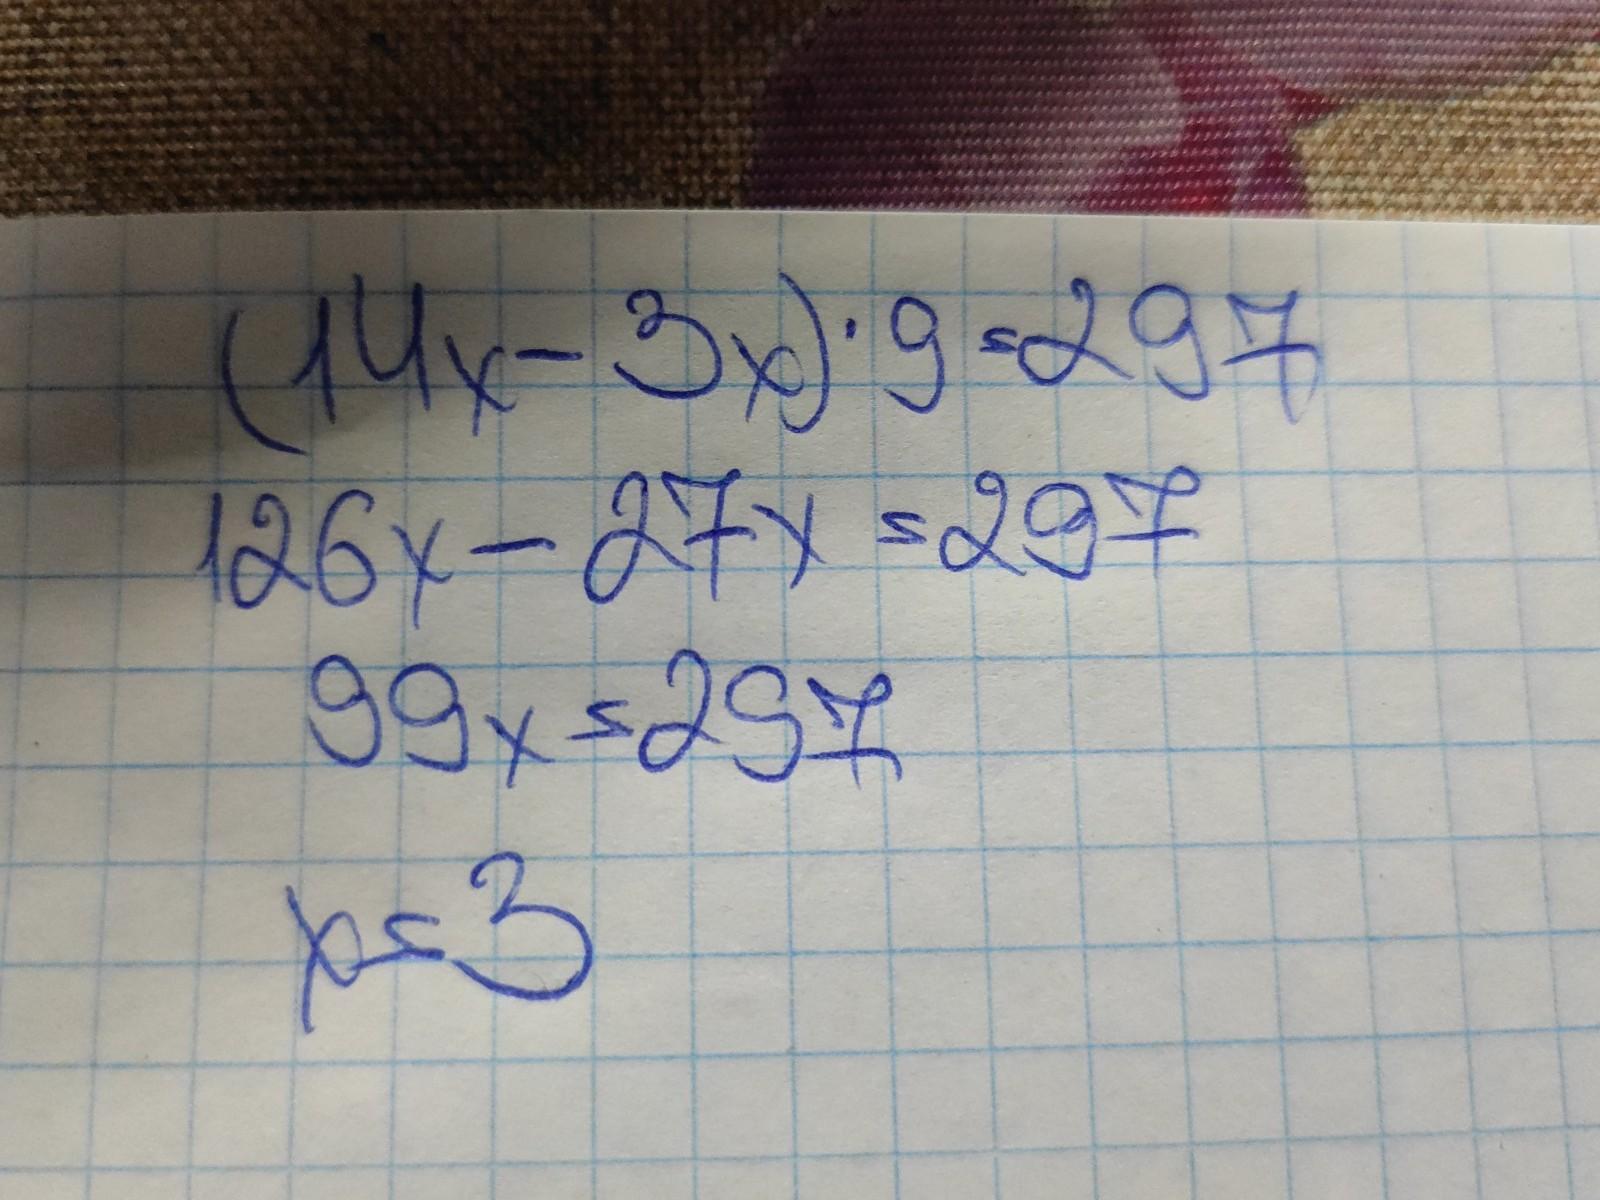 (14x - 3x) · 9 = 297
126x - 27x = 297
99x = 297
x = 3